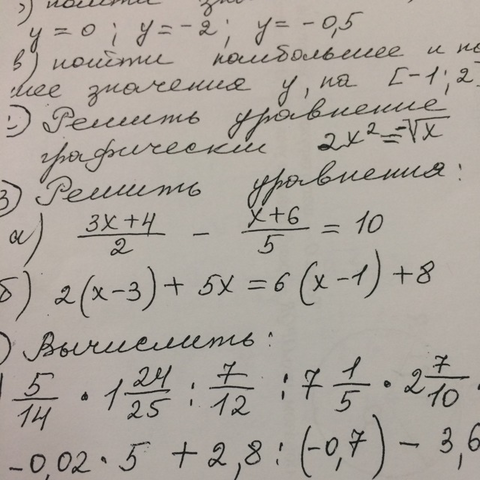 y = 0 ; y = -2 ; y = -0,5
в) найти наибольшее и
значения y, на [-1; 2]
Решить уравнение
графически 2x² = -√x
3) Решить уравнения:
а) (3x+4)/2 - (x+6)/5 = 10
б) 2(x-3) + 5x = 6(x-1) + 8
) Вычислить:
5/14 · 1 24/25 : 7/12 : 7 1/5 · 2 7/10 ·
-0,02 · 5 + 2,8 : (-0,7) - 3,6